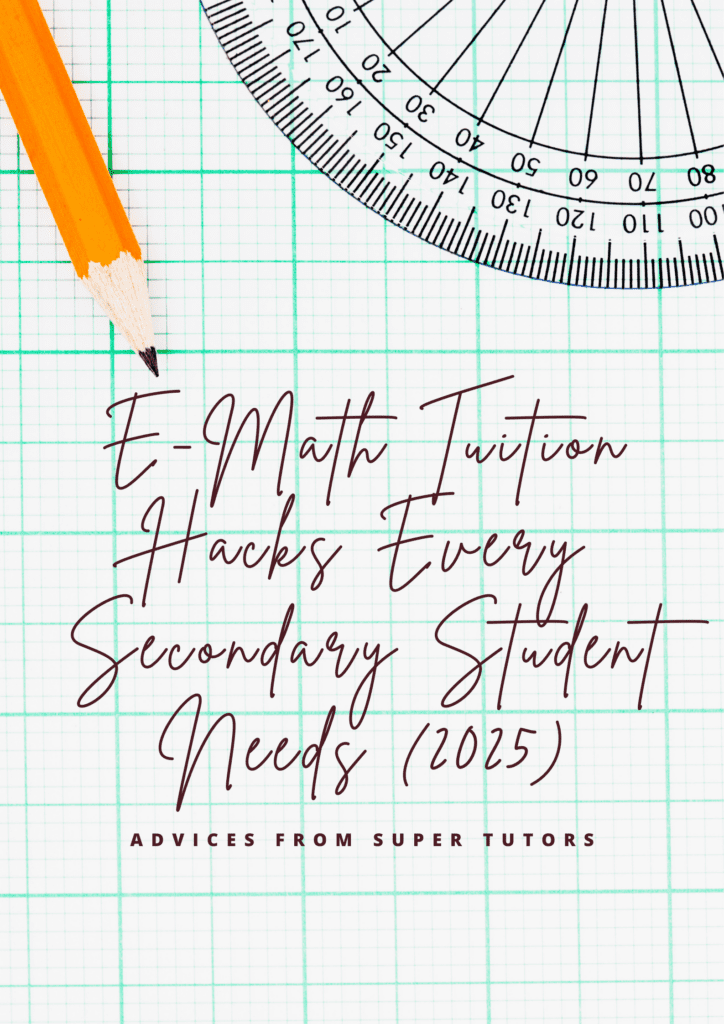 10 20 30 40 50 60 70 80
170 160 150 140 130 120 110 100
E-Math Tuition
Hacks Every
Secondary Student
Needs (2025)
ADVICES FROM SUPER TUTORS